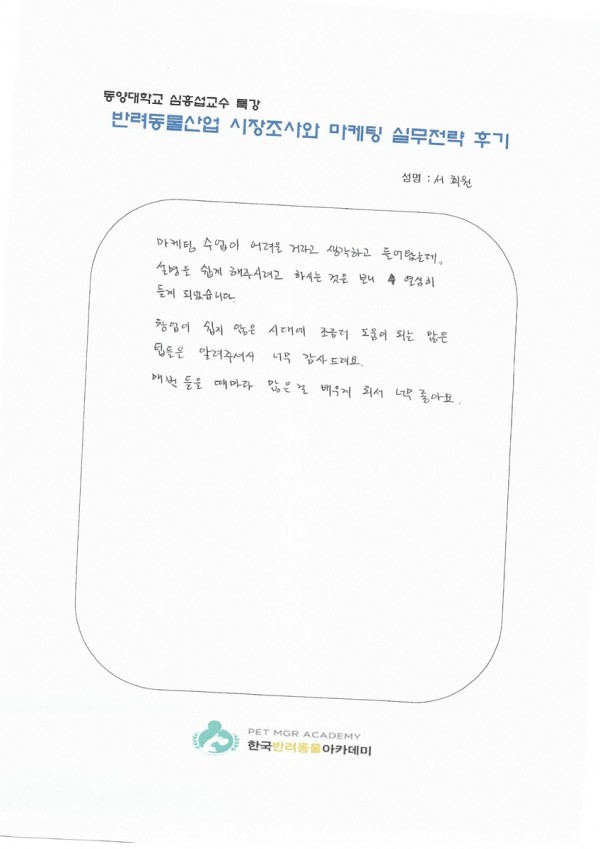 동양대학교 심홍섭교수 특강
반려동물산업 시장조사와 마케팅 실무전략 후기
성명 : 서 희원
마케팅 수업이 어려울 거라고 생각하고 들어왔는데,
설명을 쉽게 해주시려고 하시는 것을 보니 열심히
듣게 되었습니다.
창업이 쉽지 않은 시대에 조금더 도움이 되는 많은
팁들을 알려주셔서 너무 감사드려요.
매번 들을 때마다 많은 걸 배우게 되서 너무 좋아요.
PET MGR ACADEMY
한국반려동물아카데미